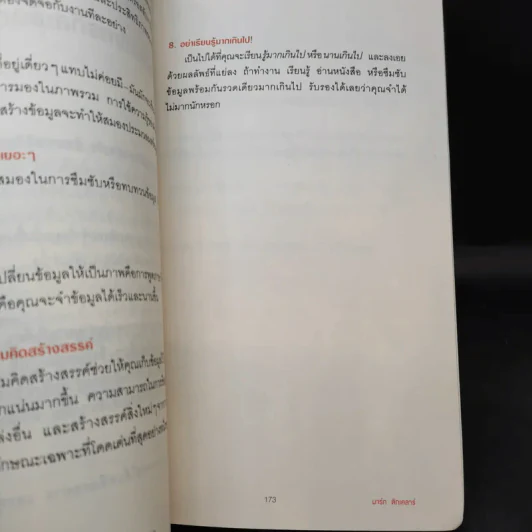 องจดจ่อกับงานทีละอย่าง
ที่อยู่เดี่ยวๆ แทบไม่ค่อยมี
การมองในภาพรวม การใช้ความรู้
สร้างข้อมูลจะทำให้สมองประมวล
เยอะๆ
สมองในการซึมซับหรือทบทวนข้อมูล
ปลี่ยนข้อมูลให้เป็นภาพคือการ
คือคุณจะจำข้อมูลได้เร็วและนานขึ้น
มคิดสร้างสรรค์
มคิดสร้างสรรค์ช่วยให้คุณเก็บข้อมูล
กแน่นมากขึ้น ความสามารถในการ
ส่งอื่น และสร้างสรรค์สิ่งใหม่ๆ
กษณะเฉพาะที่โดดเด่นที่สุดอย่าง
8. อย่าเรียนรู้มากเกินไป!
เป็นไปได้ที่คุณจะเรียนรู้มากเกินไปหรือนานเกินไป และลงเอย
ด้วยผลลัพธ์ที่แย่ลง ถ้าทำงาน เรียนรู้ อ่านหนังสือ หรือซึมซับ
ข้อมูลพร้อมกันรวดเดียวมากเกินไป รับรองได้เลยว่าคุณจำได้
ไม่มากนักหรอก
173
มาร์ก